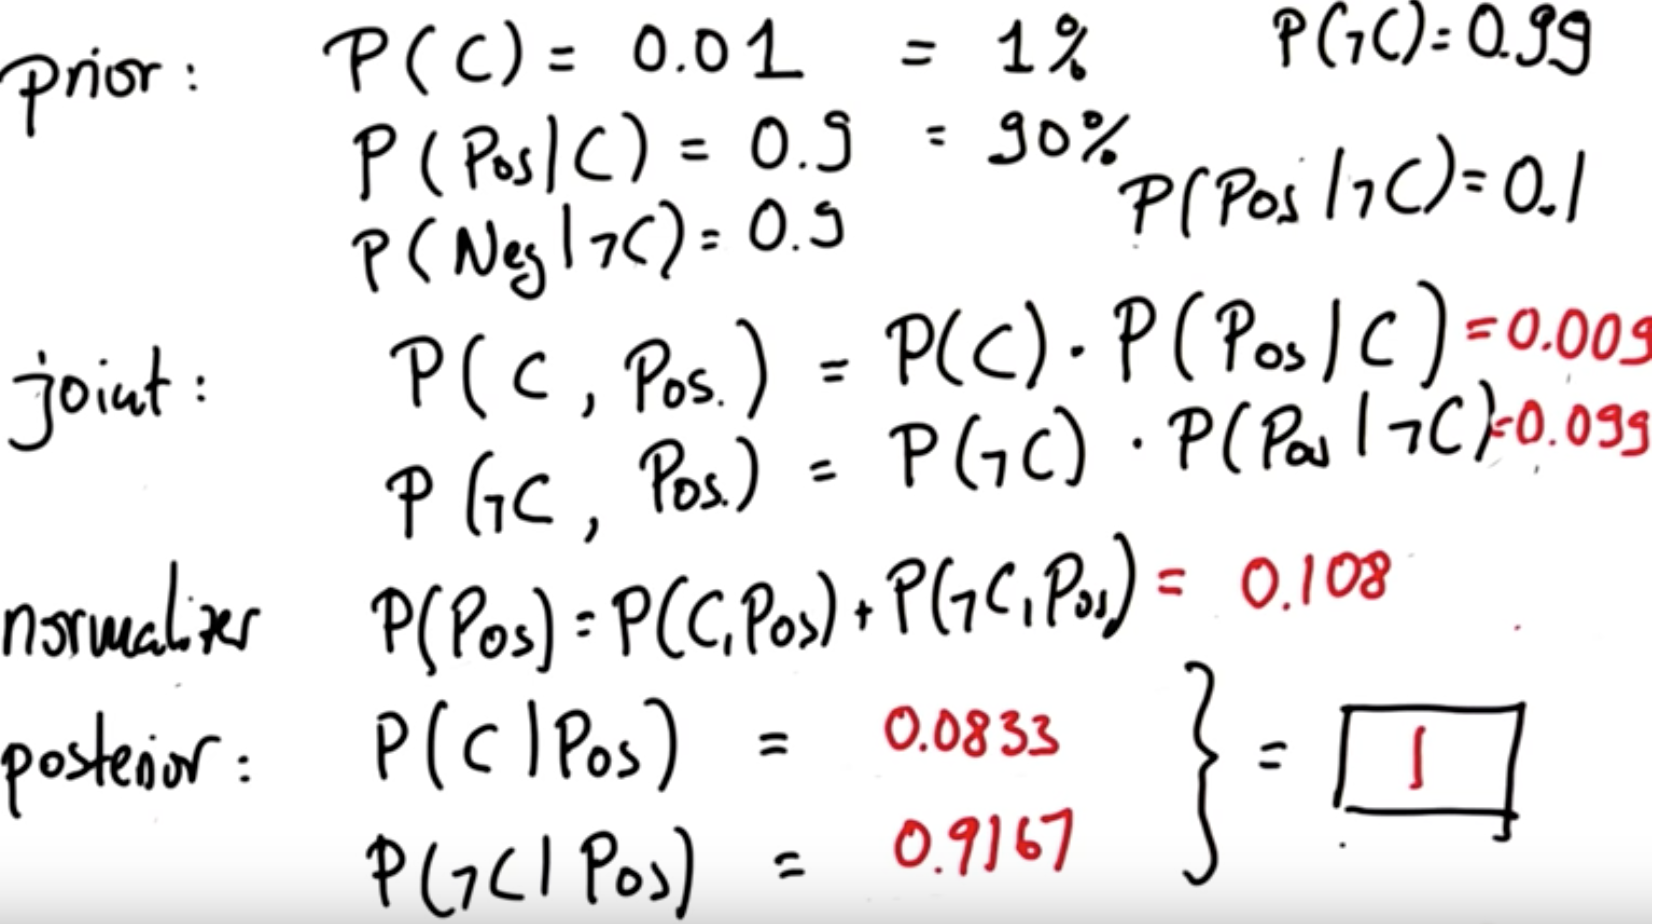 prior: P(C) = 0.01 = 1% P(¬C) = 0.99
P(Pos|C) = 0.9 = 90%
P(Pos|¬C) = 0.1
P(Neg|¬C) = 0.9
joint: P(C, Pos.) = P(C) · P(Pos|C) = 0.009
P(¬C, Pos.) = P(¬C) · P(Pos|¬C) = 0.099
normalizer P(Pos) = P(C,Pos) + P(¬C,Pos) = 0.108
posterior: P(C|Pos) = 0.0833 } = 1
P(¬C|Pos) = 0.9167